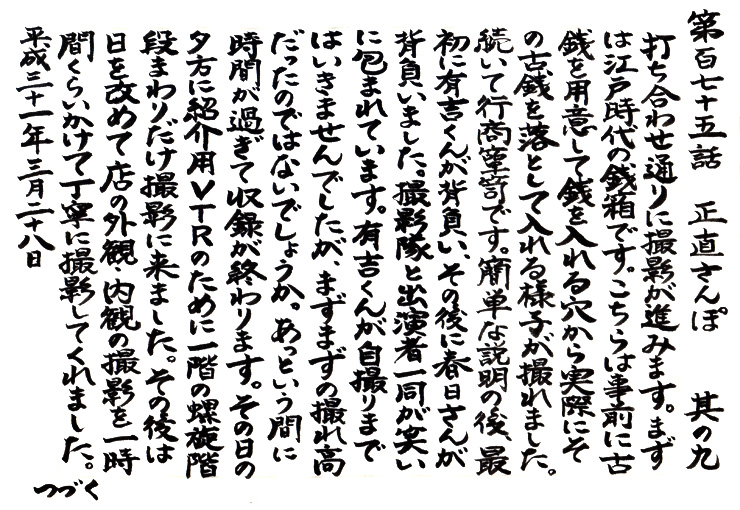 第百七十五話　正直さんぽ　其の九
打ち合わせ通りに撮影が進みます。まず
は江戸時代の銭箱です。こちらは事前に古
銭を用意して銭を入れる穴から実際にそ
の古銭を落として入れる様子が撮れました。
続いて行商箪笥です。簡単な説明の後、最
初に有吉くんが背負い、その後に春日さんが
背負いました。撮影隊と出演者一同が笑い
に包まれています。有吉くんが自撮りまで
はいきませんでしたが、まずまずの撮れ高
だったのではないでしょうか。あっという間に
時間が過ぎて収録が終わります。その日の
夕方に紹介用VTRのために一階の螺旋階
段まわりだけ撮影に来ました。その後は
日を改めて店の外観・内観の撮影を一時
間くらいかけて丁寧に撮影してくれました。
平成三十一年三月二十八日
つづく